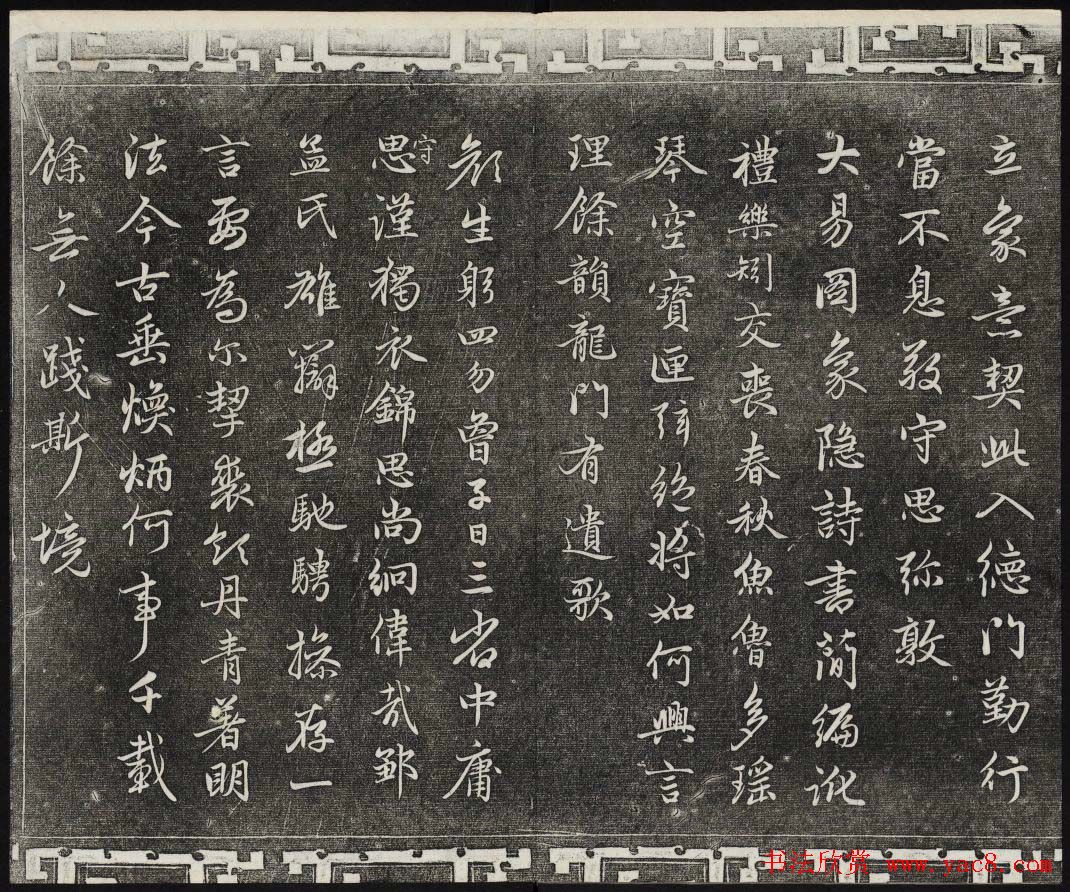 立象意契此入德門勤行
當不息敬守思弥敦
大易圖象隐詩書簡編訛
禮樂矧交喪春秋魚魯多瑶
琴空寶匣弦絶將如何興言
理餘韻龍門有遺歌
顔生躬四勿曾子日三省中庸
守
思謹獨衣錦思尚絅偉哉鄒
孟氏雄辯極馳騁操存一
言要為尔挈裘領丹青著明
法今古垂煥炳何事千載
餘無人踐斯境
书法欣赏 www.yac8.com